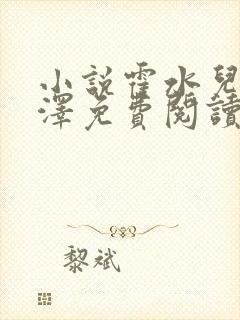 小說霍水兒
澤免費閱讀
黎斌